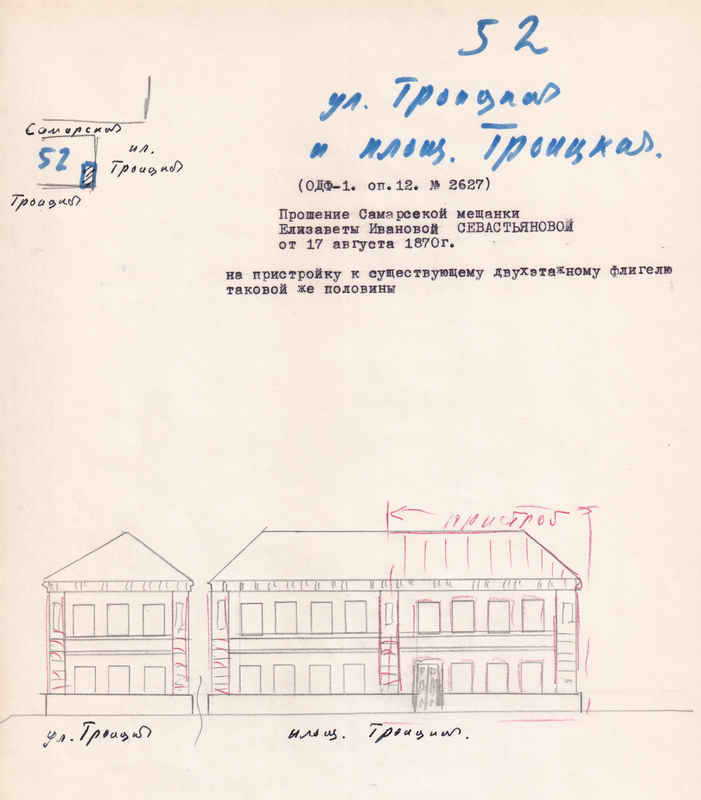 52
ул. Троицкая
и площ. Троицкая.
Самарская
52
пл.
Троицкая
Троицкая
(ОДФ-1. оп.12. № 2627)
Прошение Самарсекой мещанки
Елизаветы Ивановой СЕВАСТЬЯНОВОЙ
от 17 августа 1870г.
на пристройку к существующему двухэтажному флигелю
таковой же половины
пристрой
ул. Троицкая
площ. Троицкая.